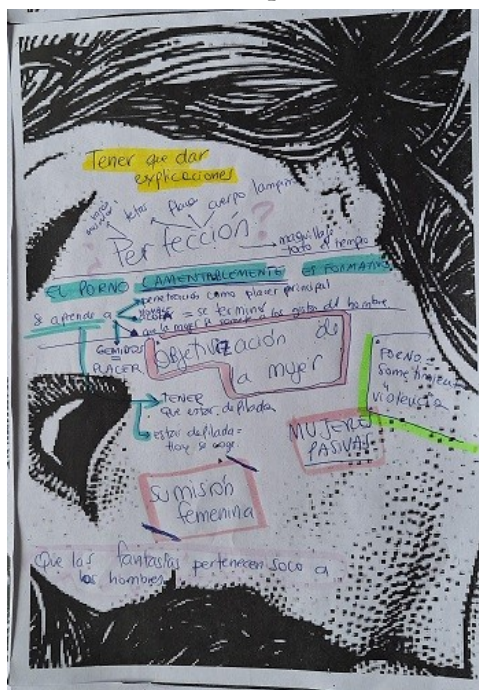 Tener que dar
explicaciones
tetas
flaca
cuerpo lampiño
¿Perfección?
maquillaje
todo el tiempo
EL PORNO LAMENTABLEMENTE ES FORMATIVO
Se aprende a
penetración como placer principal
= se terminó
que la mujer se somete a los gustos del hombre
GEMIDOS
PLACER
Objetivización de
la mujer
PORNO =
sometimiento
y
violencia
TENER
que estar depilada
estar depilada =
hoy se coge
MUJERES
PASIVAS
Sumisión
femenina
Que las fantasías pertenecen solo a
los hombres